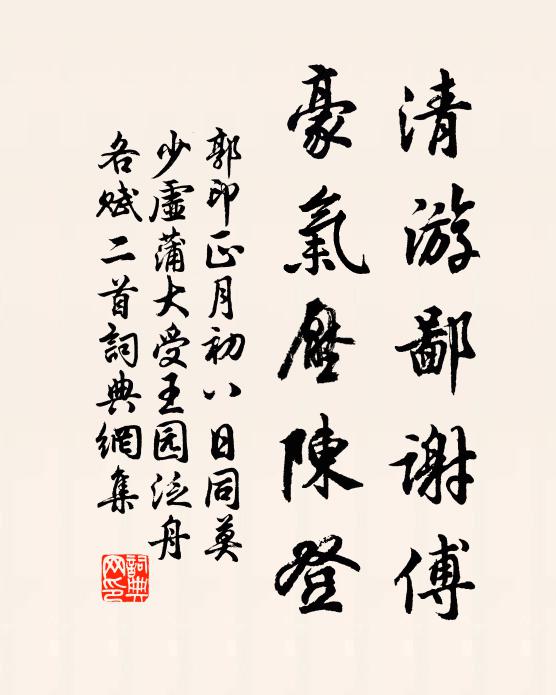 清游鄙谢傅
豪氣壓陳登
郭印正月初八日同莫
少虛蒲大受王园泛舟
各赋二首詞典網集
詞典网印